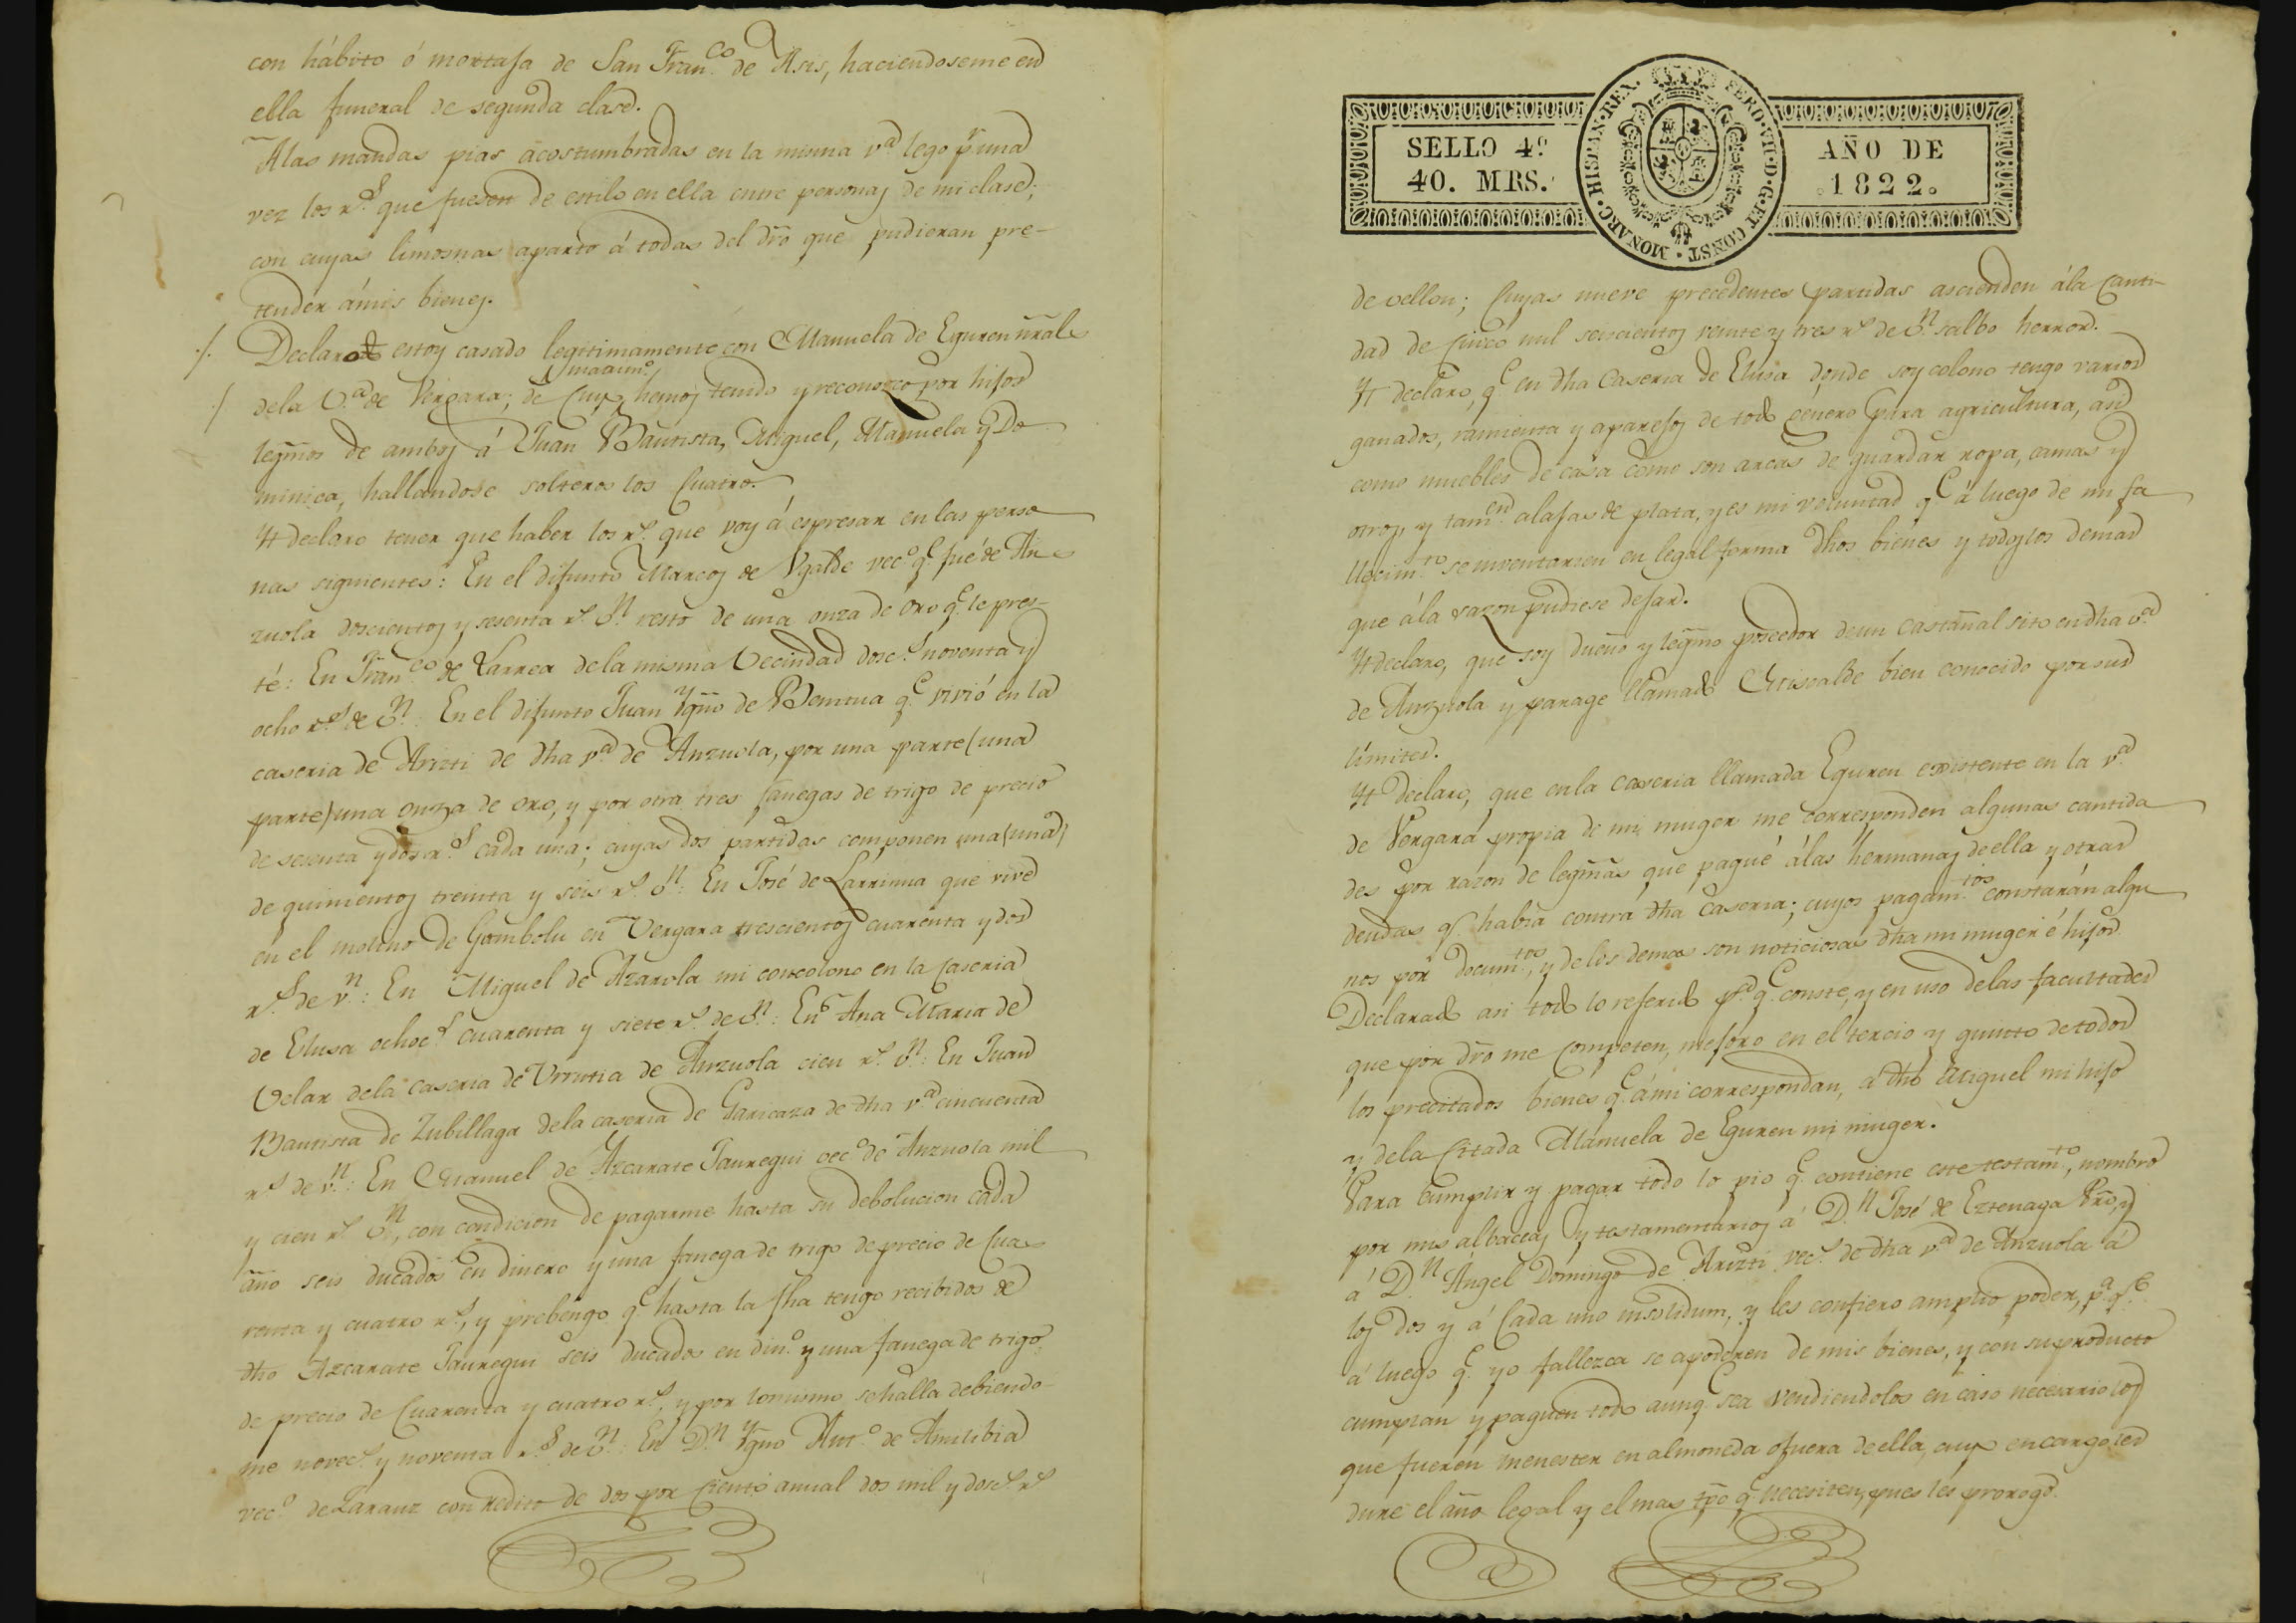 con hábito ó mortaja de San Fran.co de Asis, haciendoseme en
ella funeral de segunda clase.
A las mandas pias acostumbradas en la misma v.a lego p.r una
vez los r.s que fuesen de estilo en ella entre personas de mi clase;
con cuyas limosnas aparto á todas del dro que pudieran pre-
tender á mis bienes.
Declaro estoy casado legitimamente con Manuela de Eguren nral
matrim.o
de la V.a de Vergara; de cuyo hemos tenido y reconozco por hijos
legmos de ambos á Juan Bautista, Miguel, Manuela y Do
minica, hallandose solteros los cuatro.
Yt declaro tener que haber los r.s que voy á espresar en las perso
nas siguientes: En el difunto Marcos de Ugalde vec.o q.e fué de An
zuola doscientos y sesenta r.s v.n resto de una onza de oro q.e le pres-
té: En Fran.co de Larrea de la misma vecindad dosc.s noventa y
ocho r.s de v.n: En el difunto Juan Ygno de Beméua q.e vivió en la
caseria de Arizti de dha v.a de Anzuola, por una parte (una
parte) una onza de oro, y por otra tres fanegas de trigo de precio
de sesenta y dos r.s cada una; cuyas dos partidas componen una (una)
de quinientos treinta y seis r.s v.n: En José de Larrinua que vive
en el molino de Gombolu en Vergara trescientos cuarenta y dos
r.s de v.n: En Miguel de Azarola mi concolono en la caseria
de Elusa ochoc.s cuarenta y siete r.s de v.n: En Ana Maria de
Velar de la caseria de Urrutia de Anzuola cien r.s v.n: En Juan
Bautista de Zubillaga de la caseria de Garicaza de dha v.a cincuenta
r.s de v.n: En Manuel de Azcarate Jauregui vec.o de Anzuola mil
y cien r.s v.n, con condicion de pagarme hasta su debolucion cada
año seis ducados en dinero y una fanega de trigo de precio de cua
renta y cuatro r.s, y prebengo q.e hasta la fha tengo recibidos de
dho Azcarate Jauregui seis ducados en din.o y una fanega de trigo
de precio de cuarenta y cuatro r.s, y por lo mismo se halla debiendo-
me novec.s y noventa r.s de v.n: En D.n Ygno Ant.o de Amilibia
vec.o de Zarauz con redito de dos por ciento anual dos mil y dosc.s r.s
SELLO 4º
40. MRS.
FERD·VII·D·G·ET CONST·MONARC·HISPAN·REX·
AÑO DE
1822.
de vellon; cuyas nueve precedentes partidas ascienden á la canti-
dad de cinco mil seiscientos veinte y tres r.s de v.n salbo herror.
Yt declaro, q.e en dha Caseria de Elusa donde soy colono tengo varios
ganados, ramienta y aparejos de todo género para agricultura, asi
como muebles de casa como son arcas de guardar ropa, camas y
otros, y tam.en alajas de plata, y es mi voluntad q.e á luego de mi fa
llecim.to se inventarien en legal forma dhos bienes y todos los demas
que á la razon pudiese dejar.
Yt declaro, que soy dueño y legmo poseedor de un castañal sito en dha v.a
de Anzuola y parage llamado bien conocido por sus
límites.
Yt declaro, que en la caseria llamada Eguren existente en la v.a
de Vergara propia de mi muger me corresponden algunas cantida
des por razon de legmas que pagué á las hermanas de ella y otras
deudas q.e habia contra dha caseria; cuyos pagam.tos constarán algu
nos por docum.tos, y de los demas son noticiosas dha mi muger é hijos.
Declarado asi todo lo referido p.a q.e conste, y en uso de las facultades
que por dro me competen, mejoro en el tercio y quinto de todos
los precitados bienes q.e á mi correspondan, á dho Miguel mi hijo
y de la citada Manuela de Eguren mi muger.
Para cumplir y pagar todo lo pio q.e contiene este testam.to, nombro
por mis albaceas y testamentarios á D.n José de Eztenaga Pro, y
á D.n Angel Domingo de Arizti vec.s de dha v.a de Anzuola á
los dos y á cada uno insolidum, y les confiero amplio poder, p.a q.e
á luego q.e yo fallezca se apoderen de mis bienes, y con su producto
cumplan y paguen todo aunq.e sea vendiendolos en caso necesario los
que fueren menester en almoneda ó fuera de ella, cuyo encargo les
dure el año legal y el mas tpo q.e necesiten, pues les prorogo.